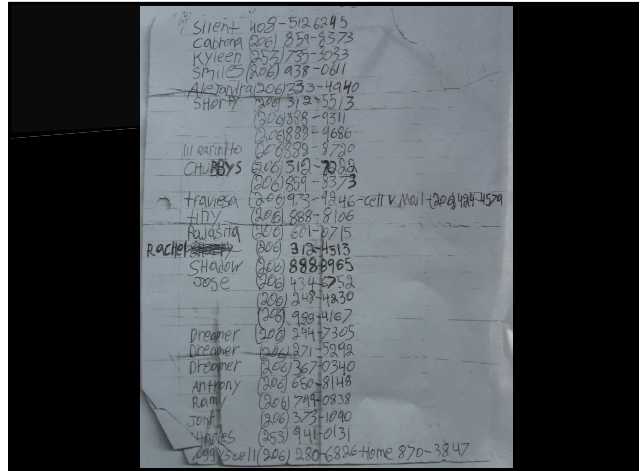 Silent 408-512 6245
Cabrona (206) 859-8373
Kyleen (253) 735-3033
Smiles (206) 938-0611
Alejandra (206) 333-4940
Shorty (206) 312-5513
(206) 888-9311
(206) 888-9686
(206) 888-8720
CHUBBYS (206) 312-7022
(206) 859-8373
traviesa (206) 973-9246-cell V. Mail-(206) 424-4579
tiny (206) 888-8106
Payasita (206) 601-0715
RACHEL (206) 312-4513
SHadow (206) 888 8965
Jose (206) 434-6752
(206) 248-4230
(206) 988-4167
Dreamer (206) 244-7305
Dreamer (206) 271-5292
Dreamer (206) 367-0340
Anthony (206) 650-8148
Ramy (206) 799-0838
John (206) 373-1090
(253) 941-0131
cell (206) 280-6826-Home 870-3847